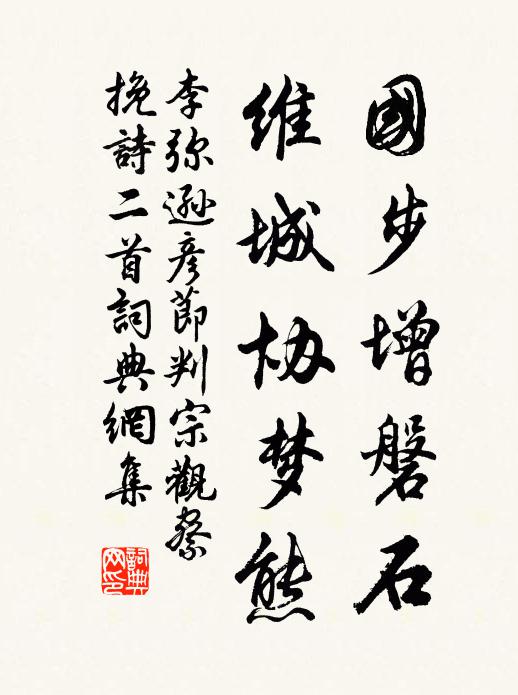 國步增磐石
维城协梦熊
李弥遜彦節判宗觀察
挽詩二首詞典網集
詞典网印